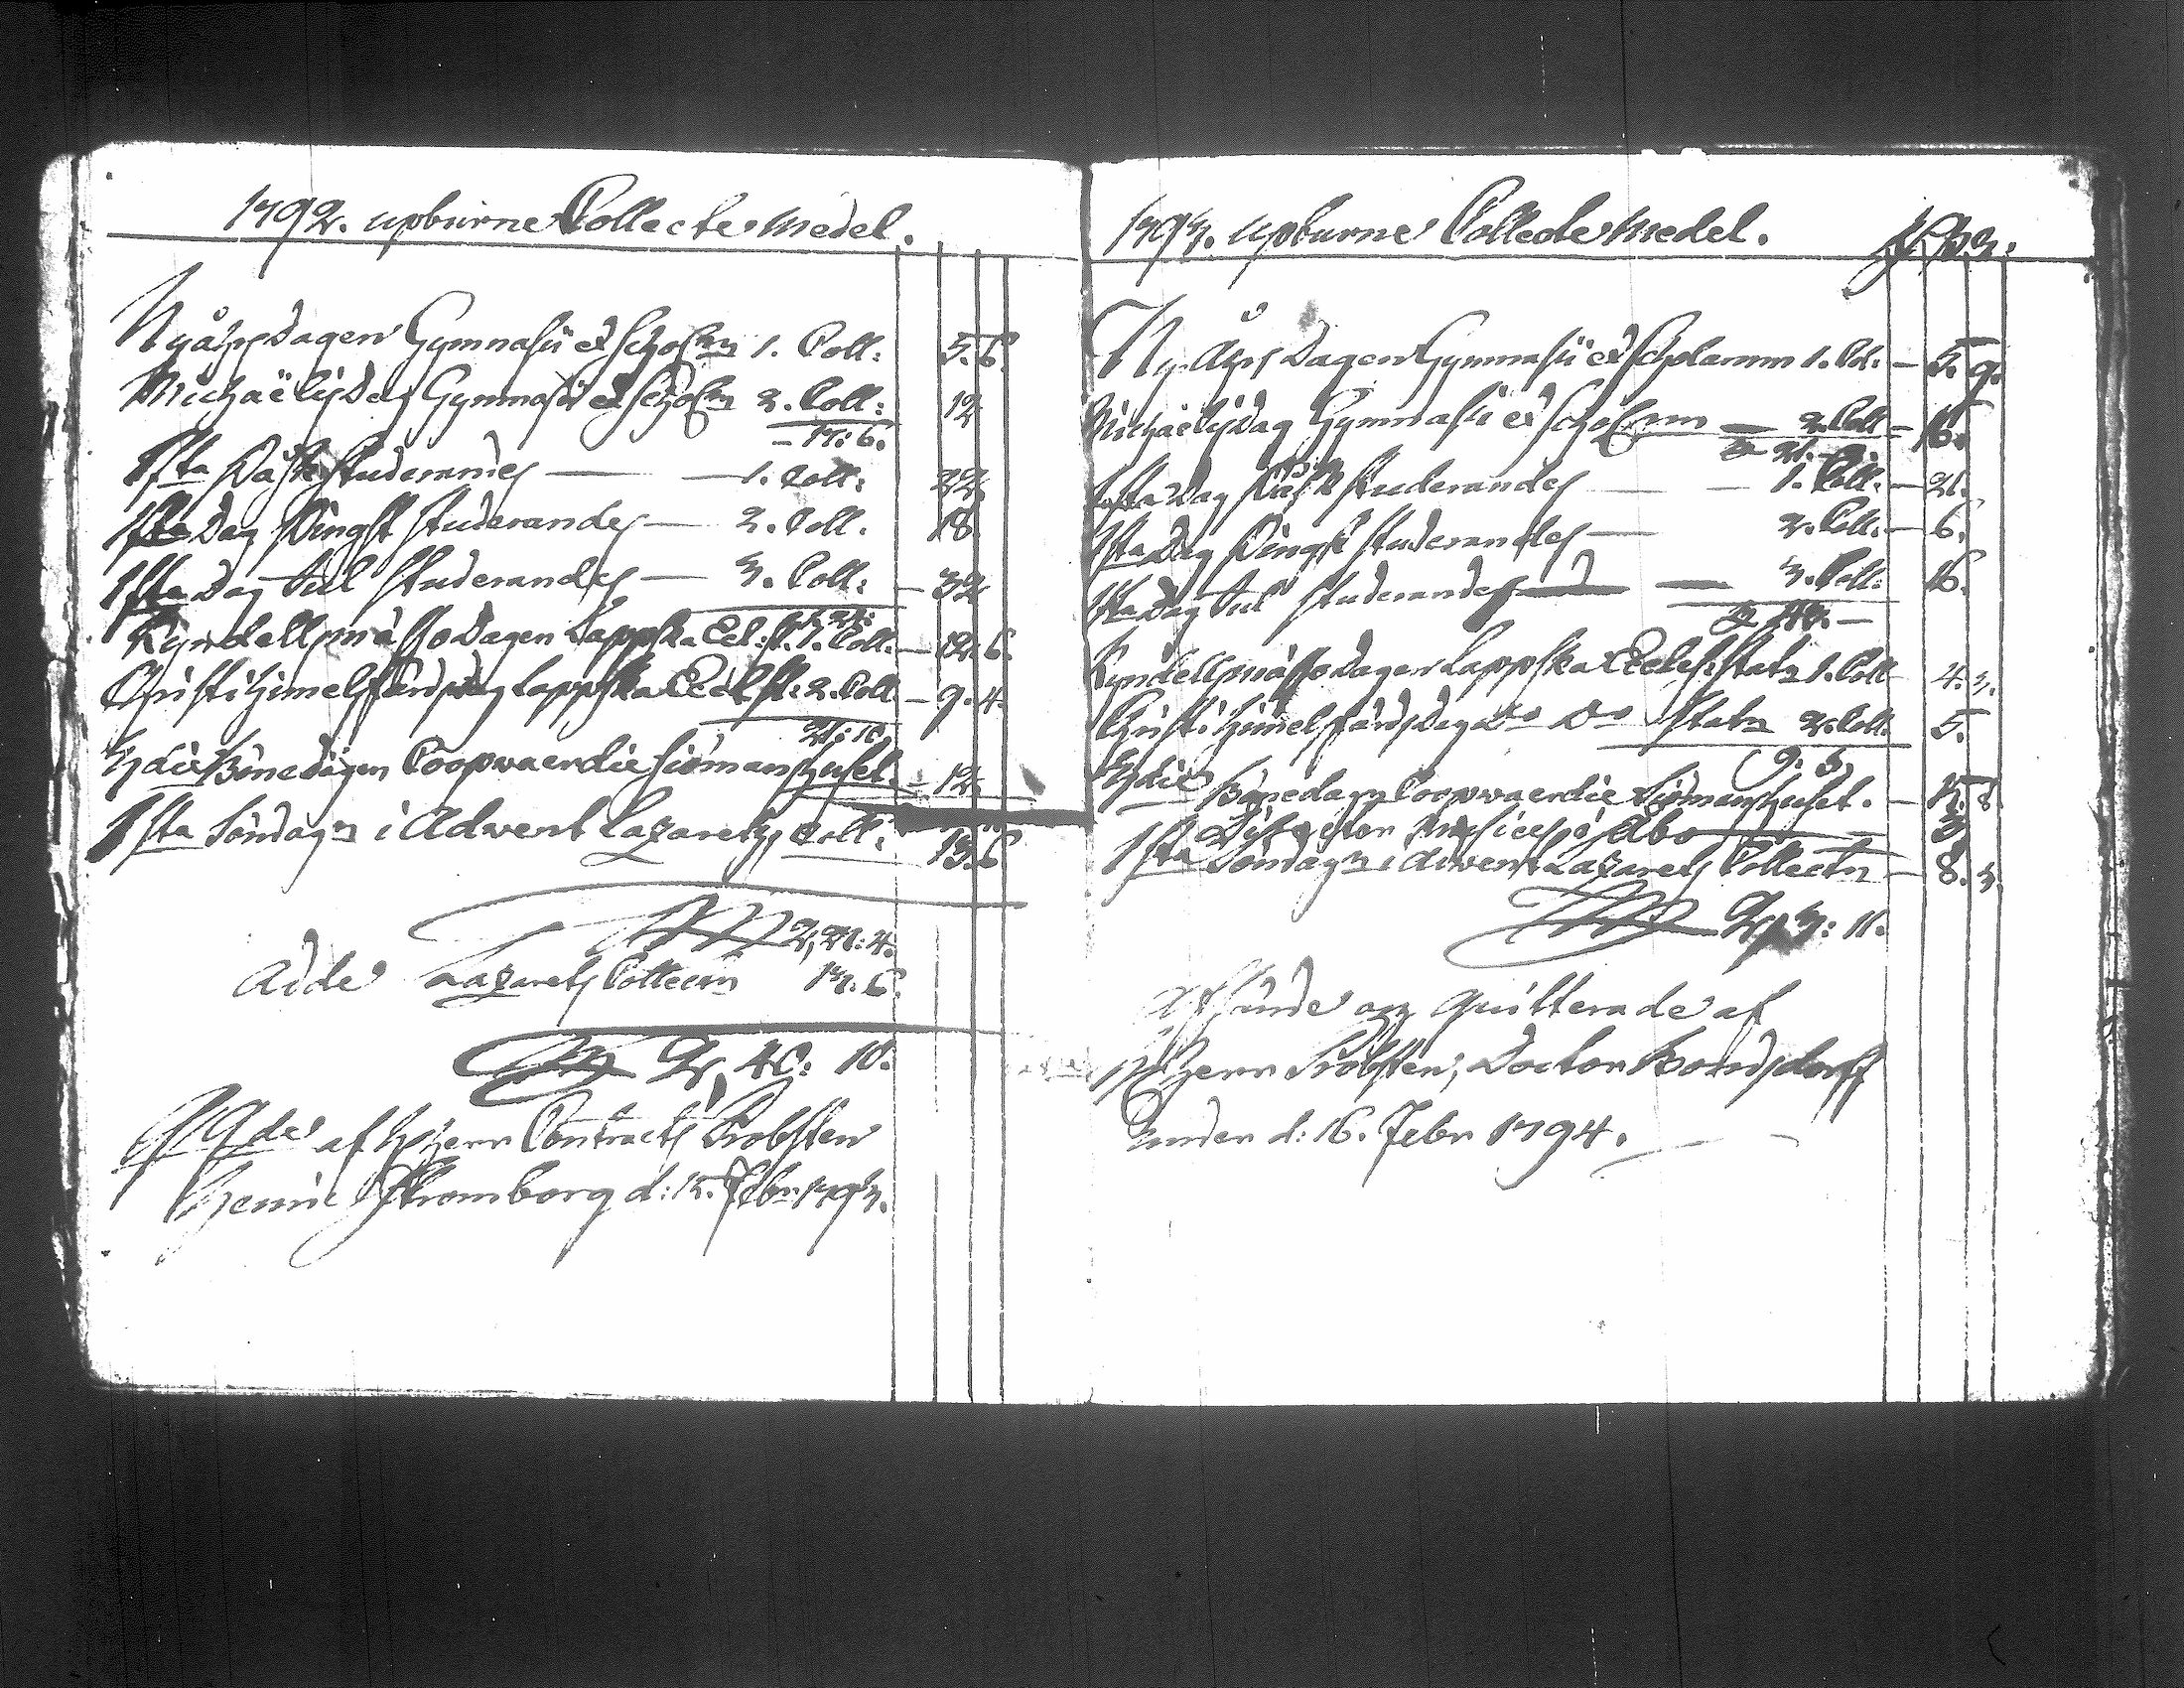 1792. upburne Collecte Medel.
Nyåhrsdagen Gymnasii et Schol:m 1. Coll: 5. 6.
Michaëlis Dag Gymnasii et Schol:m 2. Coll: 12
17: 6.
1sta Påsk Studerandes — — 1. Coll: 22
1sta Dag Pingst Studerandes — 2. Coll. 18
1sta Dag Jul Studerandes — 3. Coll: — 32
Kyndellsmässo Dagen Lappska Ecl: st. 1. Coll. — 12. 6.
Christi Himelsfärds dag Lappska Eccl. St: 2. Coll — 9. 4.
21: 10.
Bönedagen Coopvaerdie Siömans huset. — 12
1sta Söndagen i Advent Lazaretz Coll: 13. 6
2, 28: 4.
Adde Lazarets Collecten 13. 6.
2, 40: 10.
af H. Herr Contracts Probsten
Henric Stromborg d: 15. Febr. 1793.
1793. upburne Collecte Medel.
Ny Åhrs Dagen Gymnasii et Scholarum 1. Col. — 5. 9.
Michaëlis Dag Gymnasii et Schol:rum — 2. Coll — 16.
21.
1sta Dag Påsk Studerandes — — 1. Coll. — 21.
1sta Dag Pingst Studerandes — 2. Coll. — 6.
1sta Dag Jul Studerandes — 3. Coll: 16.
43. —
Kyndellsmässo Dagen Lappska Eccles. Staten 1. Coll 4. 3.
Christi Himelsfärds Dag Do Do Staten 2. Coll. 5.
9. 3.
Bönedagen Coopvaerdie Sjömans huset. — 8
Director Musices i Åbo
1sta Söndagen i Advent Lazarets Collecten — 8. 3.
2, 3: 11.
Afsände och quitterade af
H Herr Probsten, Doctor Bonsdorff
under d: 16. Febr 1794.